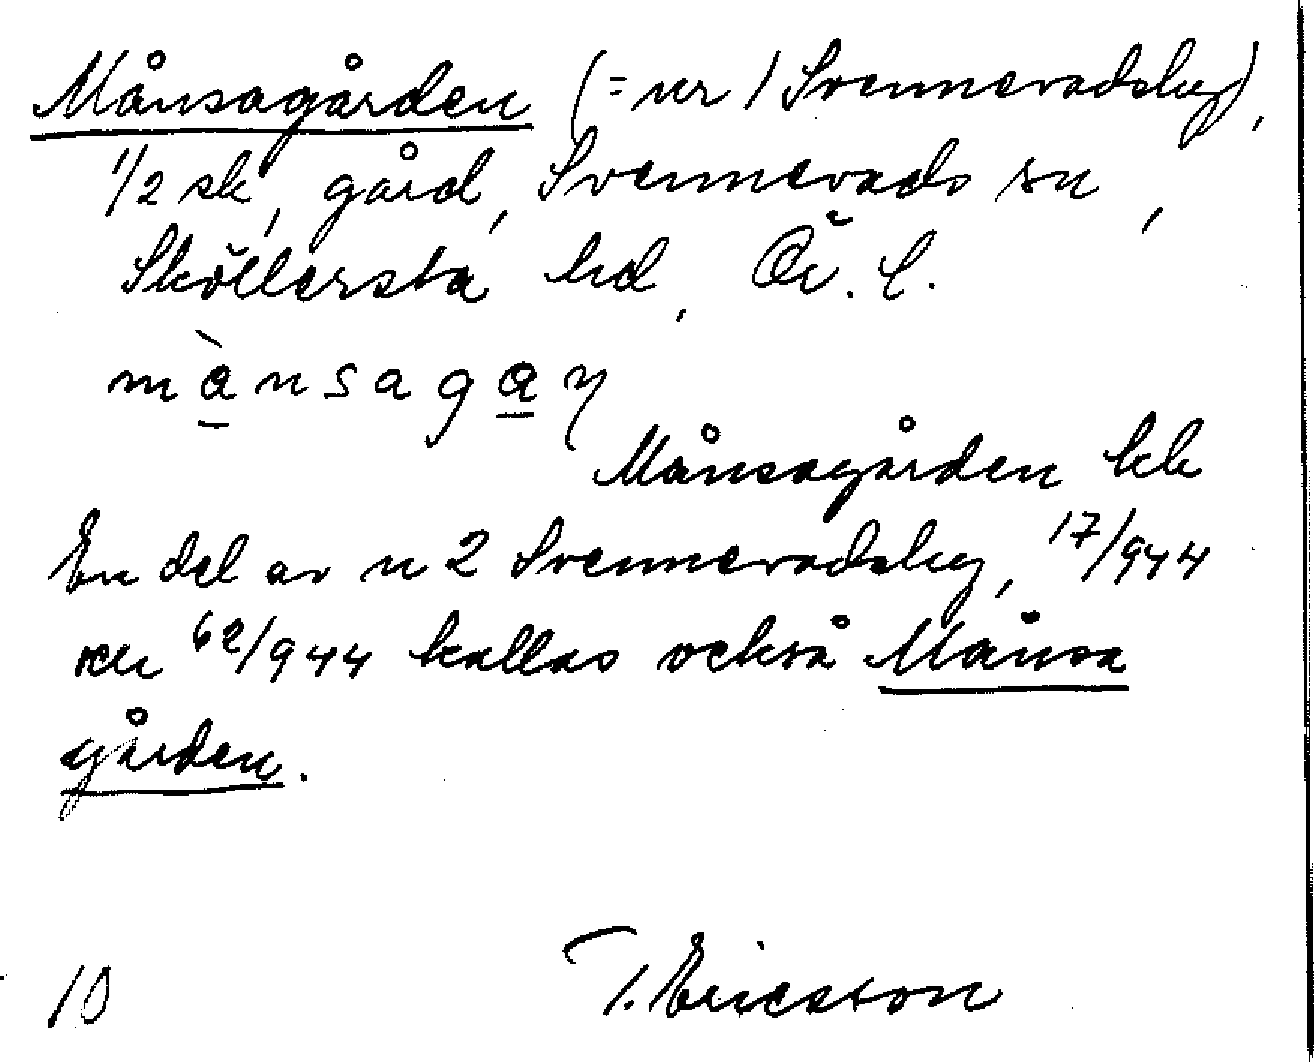 Månsagården (= nr 1 Svennevadsby),
1/2 sk, gård, Svennevads sn,
Sköllersta hd, Ör. l.
mànsagaɳ
Månsagården kk
En del av n 2 Svennevadsby, 17/944
och 62/944 kallas också Månsa
gården.
10 T. Ericsson